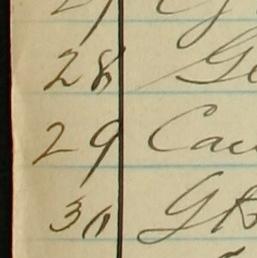 28 Ge
29 Cau
30 GB